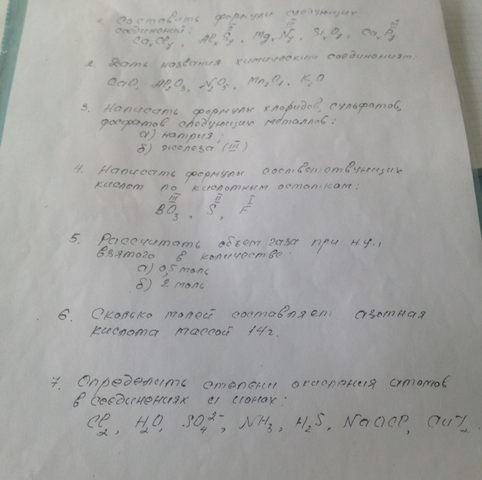 1. Составить формулы следующих
соединений:
Ca, Cl, Al, S, Mg, N, Si, O, Ca, P
2. Дать названия химическим соединениям:
CaO, Al₂O₃, N₂O₅, Mn₂O₇, K₂O
3. Написать формулы хлоридов, сульфатов,
фосфатов следующих металлов:
а) натрия
б) железа (III)
4. Написать формулы соответствующих
кислот по кислотным остаткам:
BO₃, S, F
5. Рассчитать объем газа при н.у.,
взятого в количестве
а) 0,5 моль
б) 2 моль
6. Сколько молей составляет азотная
кислота массой 14г.
7. Определить степени окисления атомов
в соединениях и ионах:
Cl₂, H₂O, SO₄²⁻, NH₃, H₂S, NaOCl,